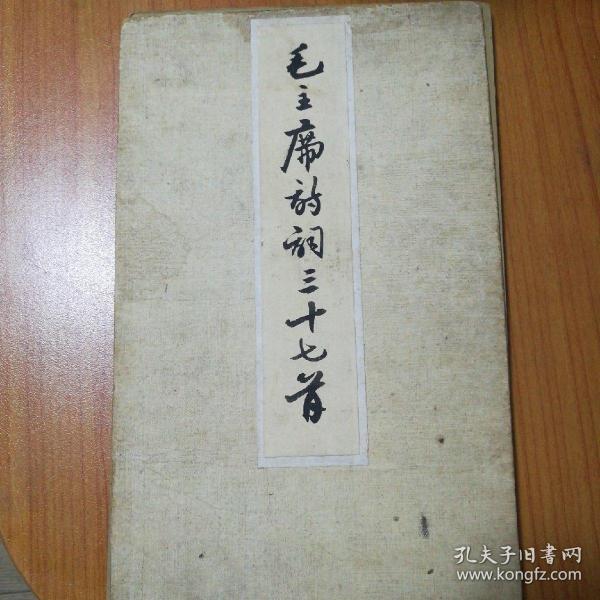 毛主席詩詞三十七首
孔夫子旧書网
www.kongfz.com